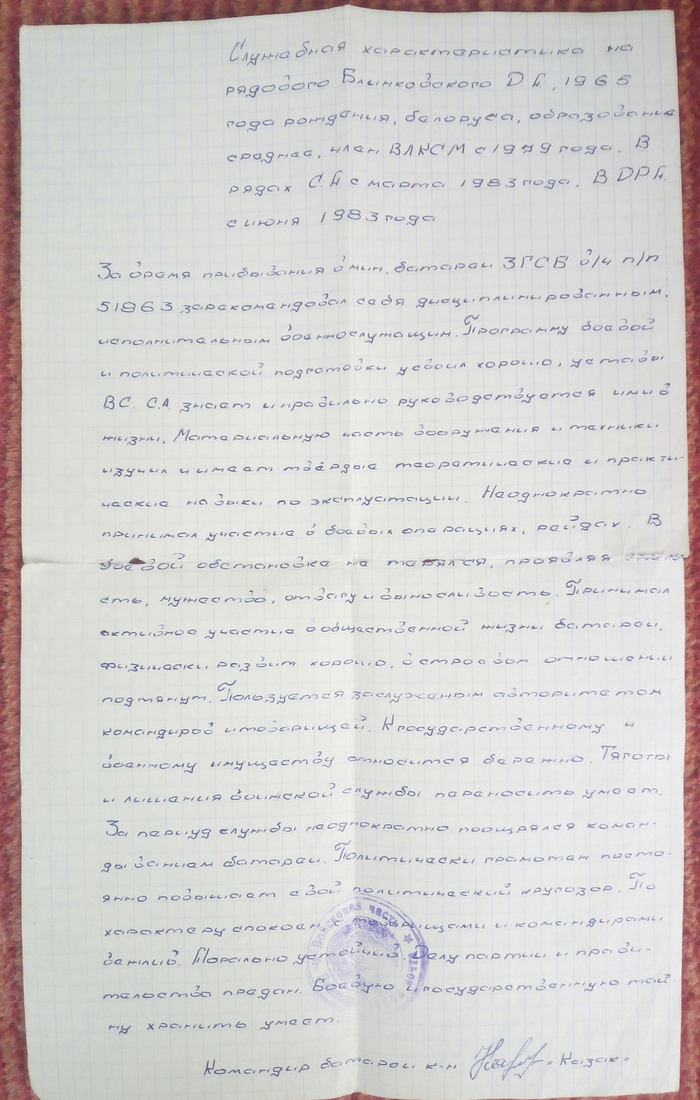 Служебная характеристика на
рядового Блинковского Д.А., 1965
года рождения, белоруса, образование
среднее, член ВЛКСМ с 1979 года. В
рядах С.А с марта 1983 года. В ДРА.
с июня 1983 года
За время прибывания в мин. батареи 3ГСБ в/ч п/п
51863 зарекомендовал себя дисциплинированным,
исполнительным военнослужащим. Программу боевой
и политической подготовки усвоил хорошо, уставы
ВС. СА. знает и правильно руководствуется ими в
жизни. Материальную часть вооружения и техники
изучил и имеет твёрдые теоретические и практи-
ческие навыки по эксплуатации. Неоднократно
принимал участие в боевых операциях, рейдах. В
боевой обстановке не терялся, проявляя
сть, мужество, отвагу и выносливость. Принимал
активное участие в общественной жизни батареи.
физически развит хорошо, в строевом отношении
подтянут. Пользуется заслуженым авторитетом
командиров и товарищей. К государственному и
военному имуществу относится бережно. Тяготы
и лишения воинской службы переносить умеет.
За периуд службы неоднократно поощрялся коман-
дыванием батареи. Политически грамотен посто-
янно повышает свой политический кругозор. По
характеру спокоен, с товарищами и командирами
вежлив. Морально устойчив. Делу партии и прави-
тельства предан. Боевую и государственную тай
ну хранить умеет.
Войсковая часть
Командир батареи к-н = Казак =